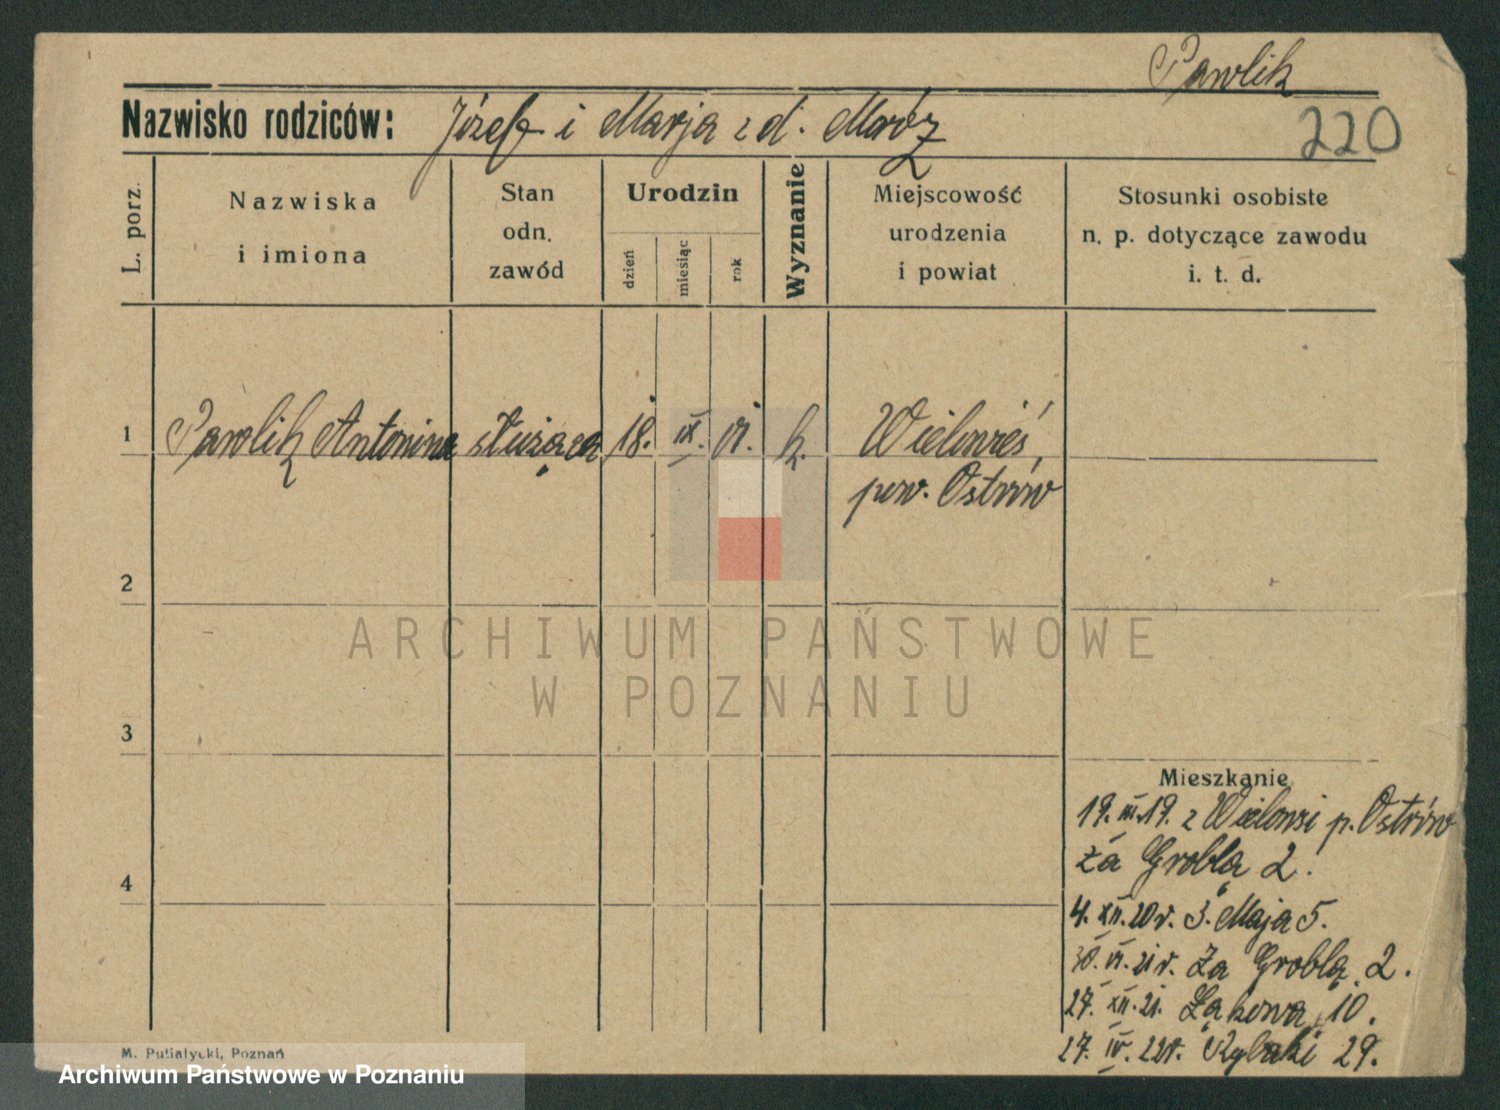 Pawlik
Nazwisko rodziców: Józef i Marja z d. Mróz
220
L. porz.
Nazwiska
i imiona
Stan
odn.
zawód
Urodzin
dzień
miesiąc
rok
Wyznanie
Miejscowość
urodzenia
i powiat
Stosunki osobiste
n. p. dotyczące zawodu
i. t. d.
1 Pawlik Antonina służąca 18. IX. 01. k. Wielowieś,
pow. Ostrów
2
ARCHIWUM PAŃSTWOWE
W POZNANIU
3
Mieszkanie
19. III. 19. z Wielowsi p. Ostrów
za Groblą 2.
4
4. XII. 20 r. 3. Maja 5.
30. VI. 21 r. Za Groblą 2.
27. XII. 21. Łąkowa 10.
27. IV. 22 r. Rybaki 29.
M. Putiatycki, Poznań
Archiwum Państwowe w Poznaniu